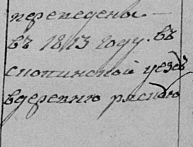 переведены
въ 1813 году въ
скопинской уездъ
вдеревню